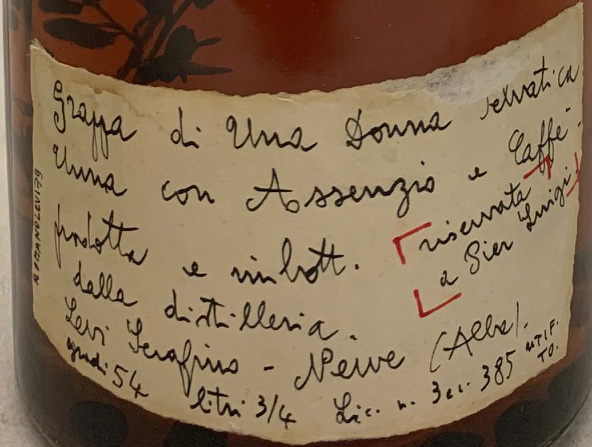 Grappa di Una Donna selvatica
Unna con Assenzio e Caffè -
prodotta e imbott.
riservata
a Pier Luigi
dalla distilleria
Levi Serafino - Neive (Alba).
gradi 54 litri 3/4 Lic. n. 3 ec. 385 UTIF.
TO.
ROMANO LEVI 79